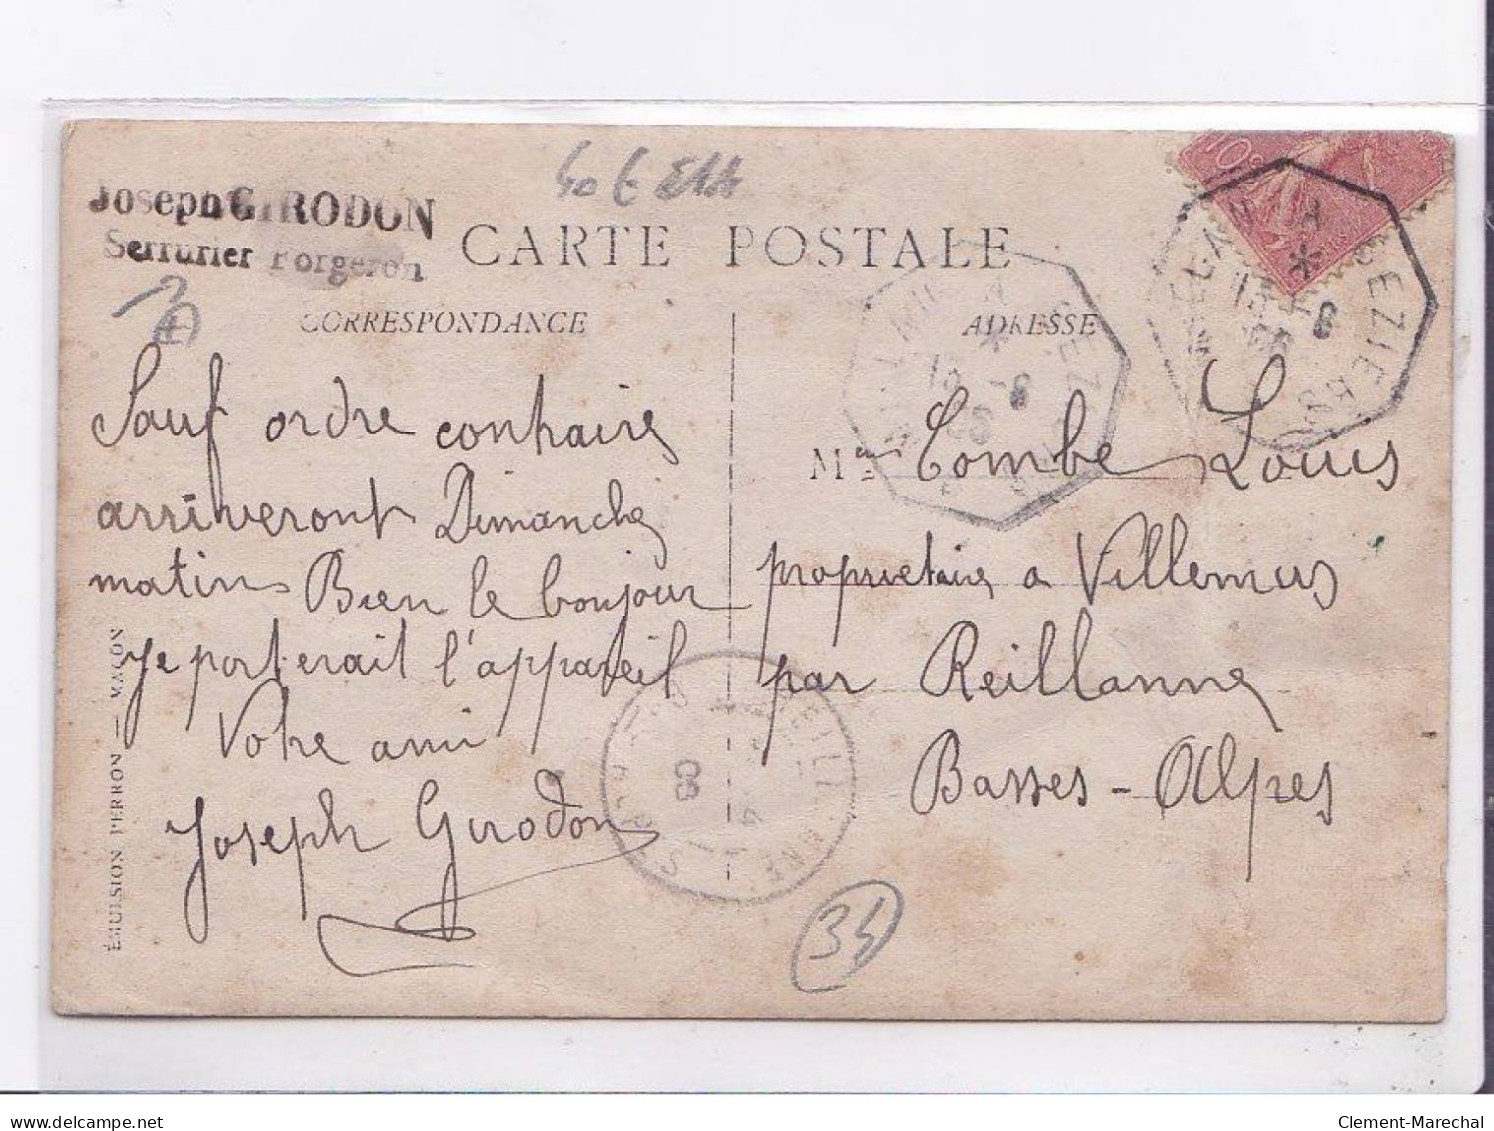 Joseph GIRODON
Serrurier Forgeron
CARTE POSTALE
CORRESPONDANCE
ADRESSE
Sauf ordre contraire
arriveront Dimanche
matin Bien le bonjour
je porterait l'appareil
Votre ami
Joseph Girodon
M Combe Louis
propriétaire a Villemus
par Reillanne
Basses-Alpes
34
ÉMULSION PERRON — MACON
10
A BEZIERS
*
15
8
*
15 -8
08
delcampe.net
Clement-Marechal